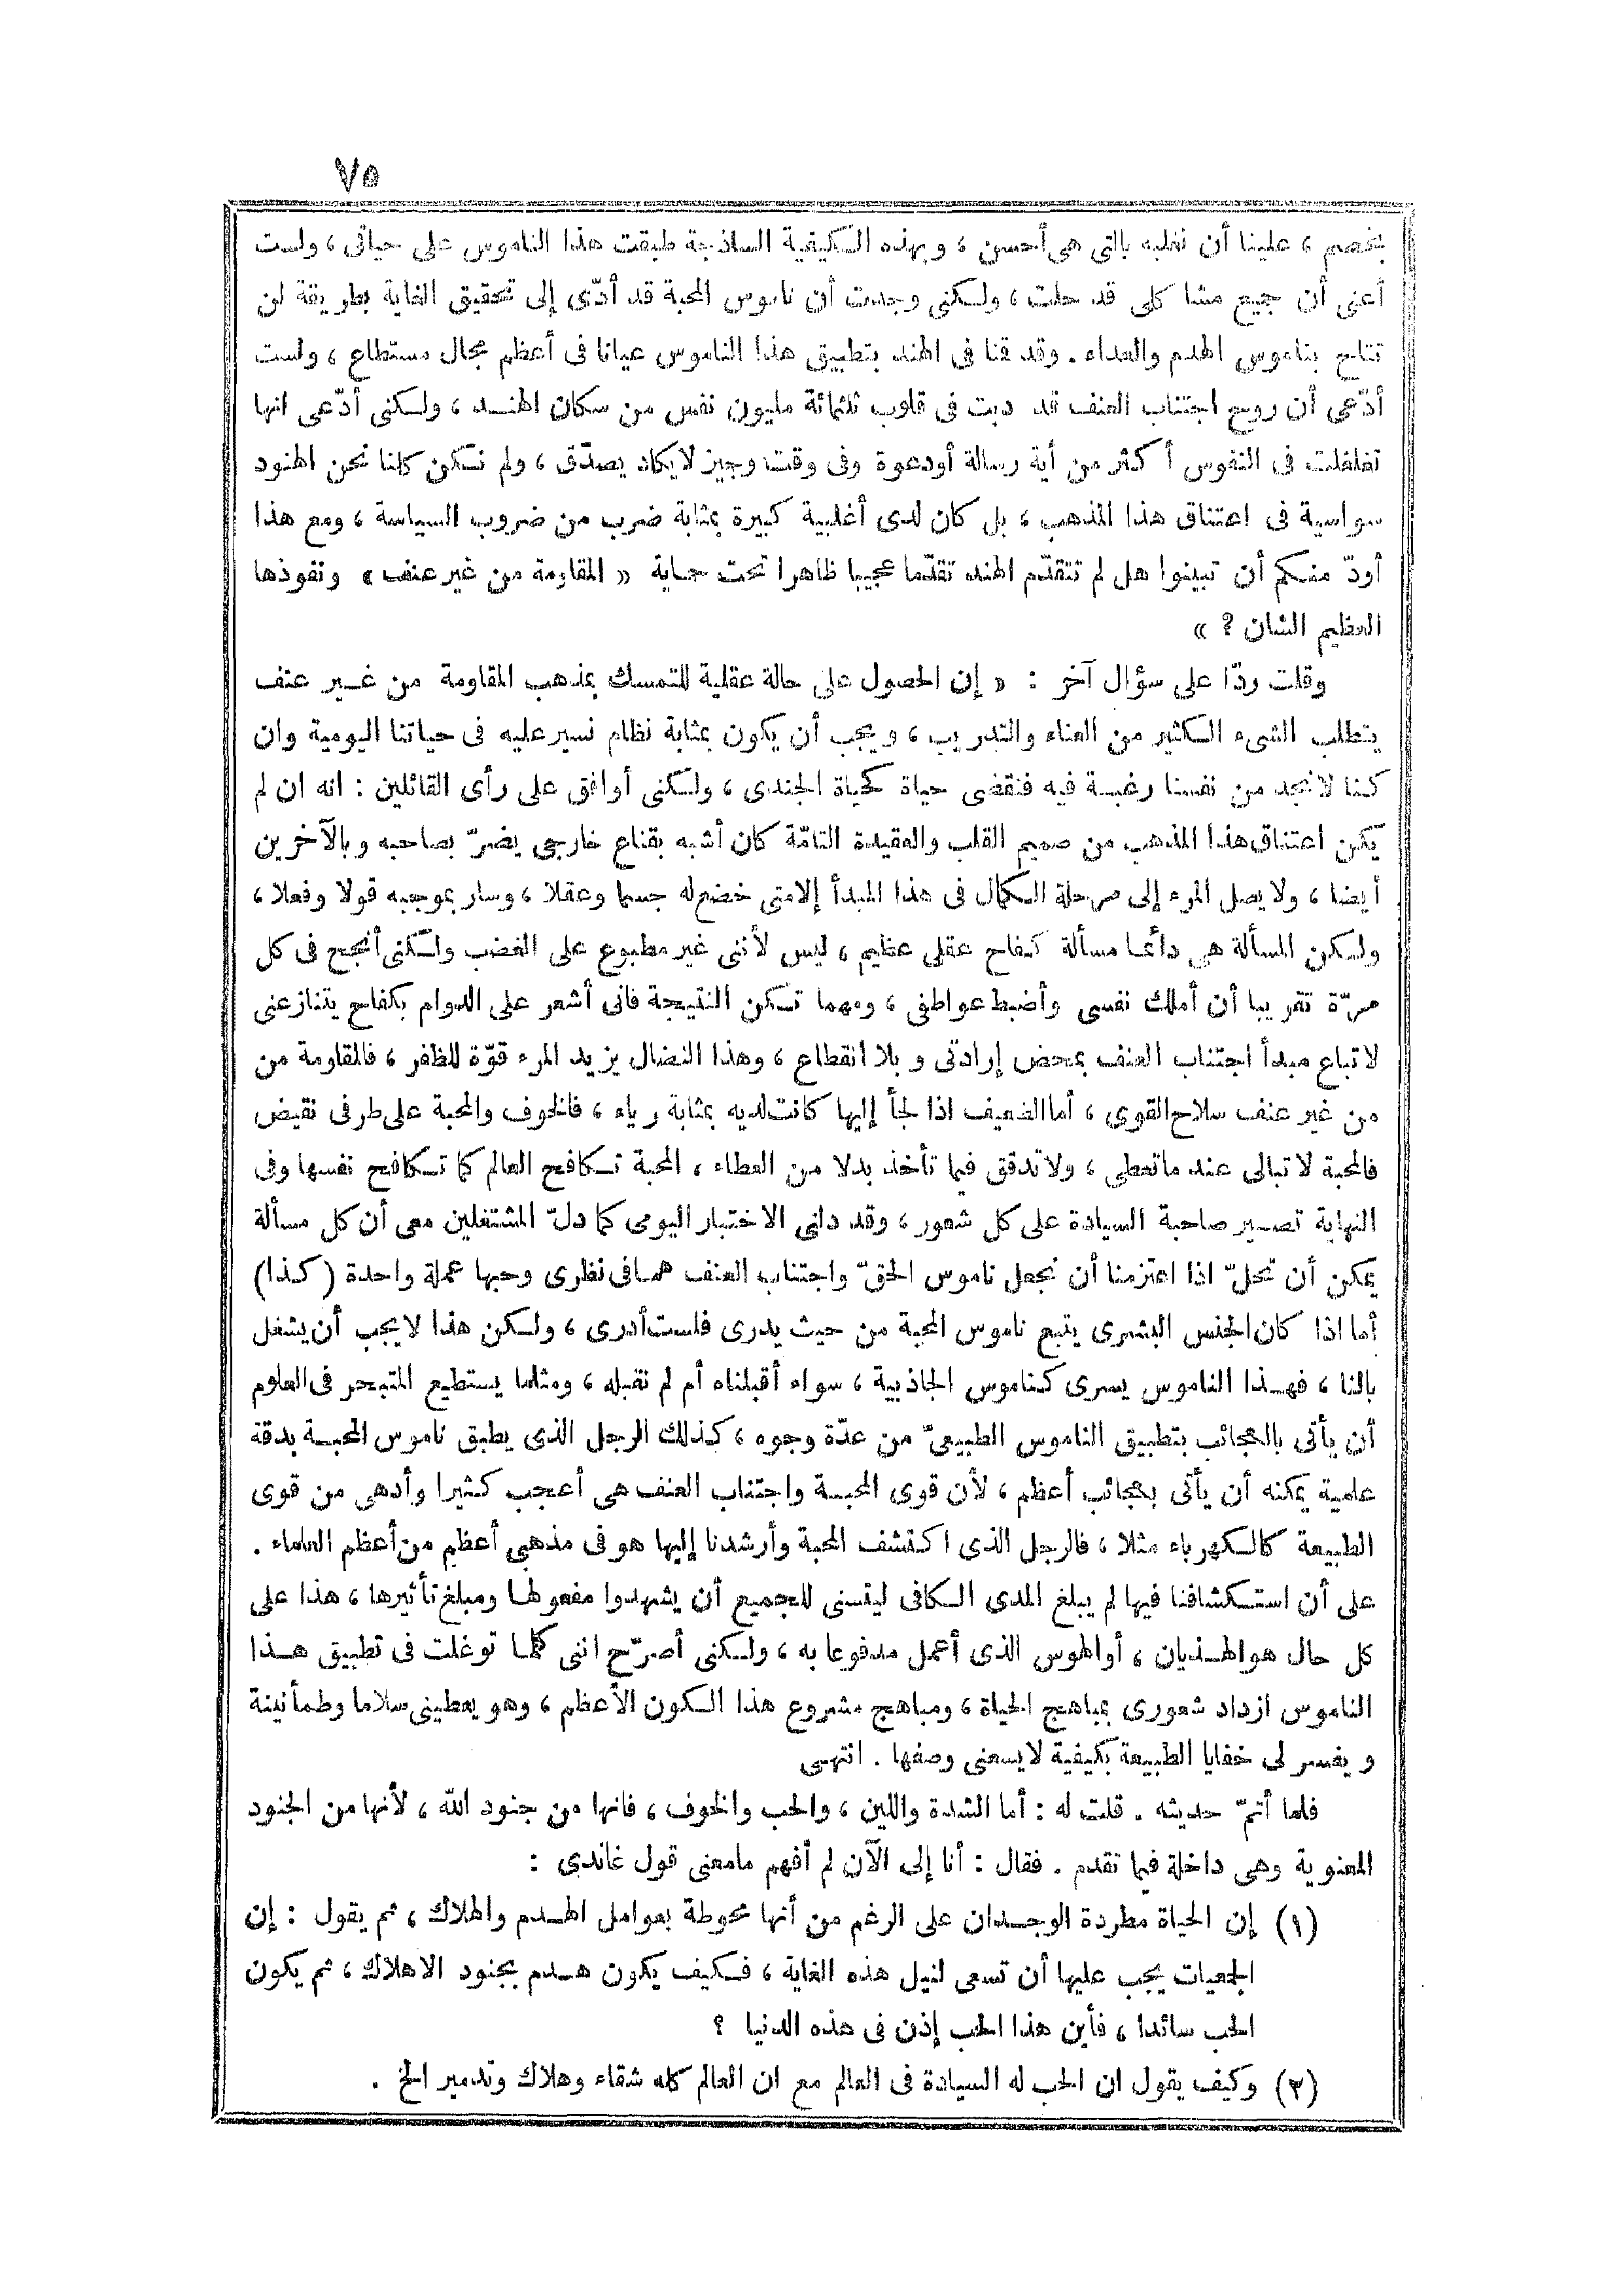 ٧٥
بخصم ، علينا أن نغلبه بالتى هى أحسن ، وبهذه الكيفية الساذجة طبقت هذا الناموس على حياتى ، ولست
أعنى أن جميع مشا كلى قد حلت ، ولكنى وجدت أن ناموس المحبة قد أدّى إلى تحقيق الغاية بطريقة لن
تتاح بناموس الهدم والعداء . وقد قمنا فى الهند بتطبيق هذا الناموس عيانا فى أعظم مجال مستطاع ، ولست
أدّعى أن روح اجتناب العنف قد دبت فى قلوب ثلثمائة مليون نفس من سكان الهند ، ولكنى أدّعى انها
تغلغلت فى النفوس أكثر من أية رسالة أودعوة وفى وقت وجيز لايكاد يصدّق ، ولم نكن كلنا نحن الهنود
سواسية فى اعتناق هذا المذهب ، بل كان لدى أغلبية كبيرة بمثابة ضرب من ضروب السياسة ، ومع هذا
أودّ منكم أن تبينوا هل لم تتقدّم الهند تقدّما عجيبا ظاهرا تحت حماية « المقاومة من غير عنف » ونفوذها
العظيم الشان ؟ »
وقلت ردّا على سؤال آخر : « إن الحصول على حالة عقلية للتمسك بمذهب المقاومة من غير عنف
يتطلب الشىء الكثير من العناء والتدريب ، ويجب أن يكون بمثابة نظام نسير عليه فى حياتنا اليومية وان
كنا لانجد من نفسنا رغبة فيه فنقضى حياة كحياة الجندى ، ولكنى أوافق على رأى القائلين : انه ان لم
يكن اعتناق هذا المذهب من صميم القلب والعقيدة التامّة كان أشبه بقناع خارجى يضرّ بصاحبه وبالآخرين
أيضا ، ولا يصل المرء إلى مرحلة الكمال فى هذا المبدأ إلامتى خضع له جسما وعقلا ، وسار بموجبه قولا وفعلا ،
ولكن المسألة هى دائما مسألة كفاح عقلى عظيم ، ليس لأننى غير مطبوع على الغضب ولكنى أنجح فى كل
مرّة تقريبا أن أملك نفسى وأضبط عواطفى ، ومهما تكن النتيجة فانى أشعر على الدوام بكفاح يتنازعنى
لاتباع مبدأ اجتناب العنف بمحض إرادتى وبلا انقطاع ، وهذا النضال يزيد المرء قوّة للظفر ، فالمقاومة من
من غير عنف سلاح القوى ، أما الضعيف اذا لجأ إليها كانت لديه بمثابة رياء ، فالخوف والمحبة على طرفى نقيض
فالمحبة لا تبالى عند ماتعطى ، ولاتدقق فيما تأخذ بدلا من العطاء ، المحبة تكافح العالم كما تكافح نفسها وفى
النهاية تصير صاحبة السيادة على كل شعور ، وقد دلنى الاختبار اليومى كما دلّ المشتغلين معى أن كل مسألة
يمكن أن تحلّ اذا اعتزمنا أن نجعل ناموس الحقّ واجتناب العنف هما فى نظرى وجها عملة واحدة (كذا)
أما اذا كان الجنس البشرى يتبع ناموس المحبة من حيث يدرى فلست أدرى ، ولكن هذا لا يجب أن يشغل
بالنا ، فهذا الناموس يسرى كناموس الجاذبية ، سواء أقبلناه أم لم نقبله ، ومثلما يستطيع المتبحر فى العلوم
أن يأتى بالعجائب بتطبيق الناموس الطبيعىّ من عدّة وجوه ، كذلك الرجل الذى يطبق ناموس المحبة بدقة
علمية يمكنه أن يأتى بعجائب أعظم ، لأن قوى المحبة واجتناب العنف هى أعجب كثيرا وأدهى من قوى
الطبيعة كالكهرباء مثلا ، فالرجل الذى اكتشف المحبة وأرشدنا إليها هو فى مذهبى أعظم من أعظم العلماء .
على أن استكشافنا فيها لم يبلغ المدى الكافى ليتسنى للجميع أن يشهدوا مفعولها ومبلغ تأثيرها ، هذا على
كل حال هو الهذيان ، أوالهوس الذى أعمل مدفوعا به ، ولكنى أصرّح اننى كلما توغلت فى تطبيق هذا
الناموس ازداد شعورى بمباهج الحياة ، ومباهج مشروع هذا الكون الأعظم ، وهو يعطينى سلاما وطمأنينة
ويفسر لى خفايا الطبيعة بكيفية لايسعنى وصفها . انتهى
فلما أتمّ حديثه . قلت له : أما الشدة واللين ، والحب والخوف ، فانها من جنود الله ، لأنها من الجنود
المعنوية وهى داخلة فيما تقدم . فقال : أنا إلى الآن لم أفهم مامعنى قول غاندى :
(١) إن الحياة مطردة الوجدان على الرغم من أنها محوطة بعوامل الهدم والهلاك ، ثم يقول : إن
الجمعيات يجب عليها أن تسعى لنيل هذه الغاية ، فكيف يكون هدم بجنود الاهلاك ، ثم يكون
الحب سائدا ، فأين هذا الحب إذن فى هذه الدنيا ؟
(٢) وكيف يقول ان الحب له السيادة فى العالم مع ان العالم كله شقاء وهلاك وتدمير الخ .